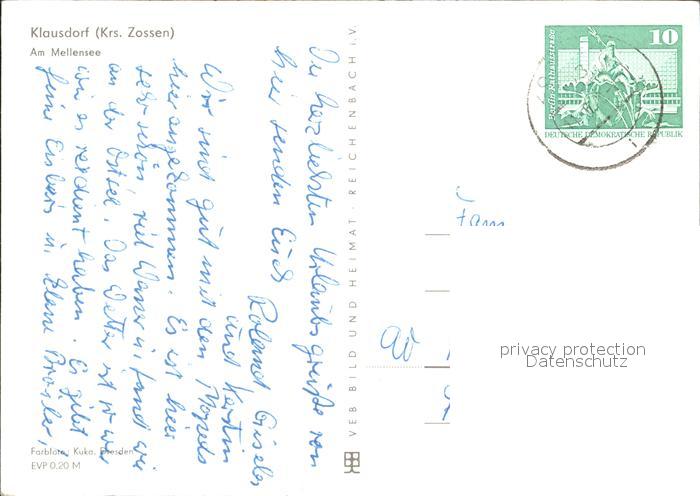 Klausdorf (Krs. Zossen)
Am Mellensee
Die herzlichsten Urlaubsgrüße von
hier senden Euch
Roland, Gisela
und Kerstin
Wir sind gut mit den Mopeds
hier angekommen. Es ist hier
sehr schön viel Wasser u. Sand wie
an der Ostsee. Das Wetter ist so wie
wir es verdient haben. Es gibt
feine Eisbein u. Elane Broiler,
Farbfoto: Kuka, Dresden
EVP 0.20 M
VEB BILD UND HEIMAT · REICHENBACH i.V.
Berlin Rathausstraße
10
DEUTSCHE DEMOKRATISCHE REPUBLIK
Fam
privacy protection
Datenschutz